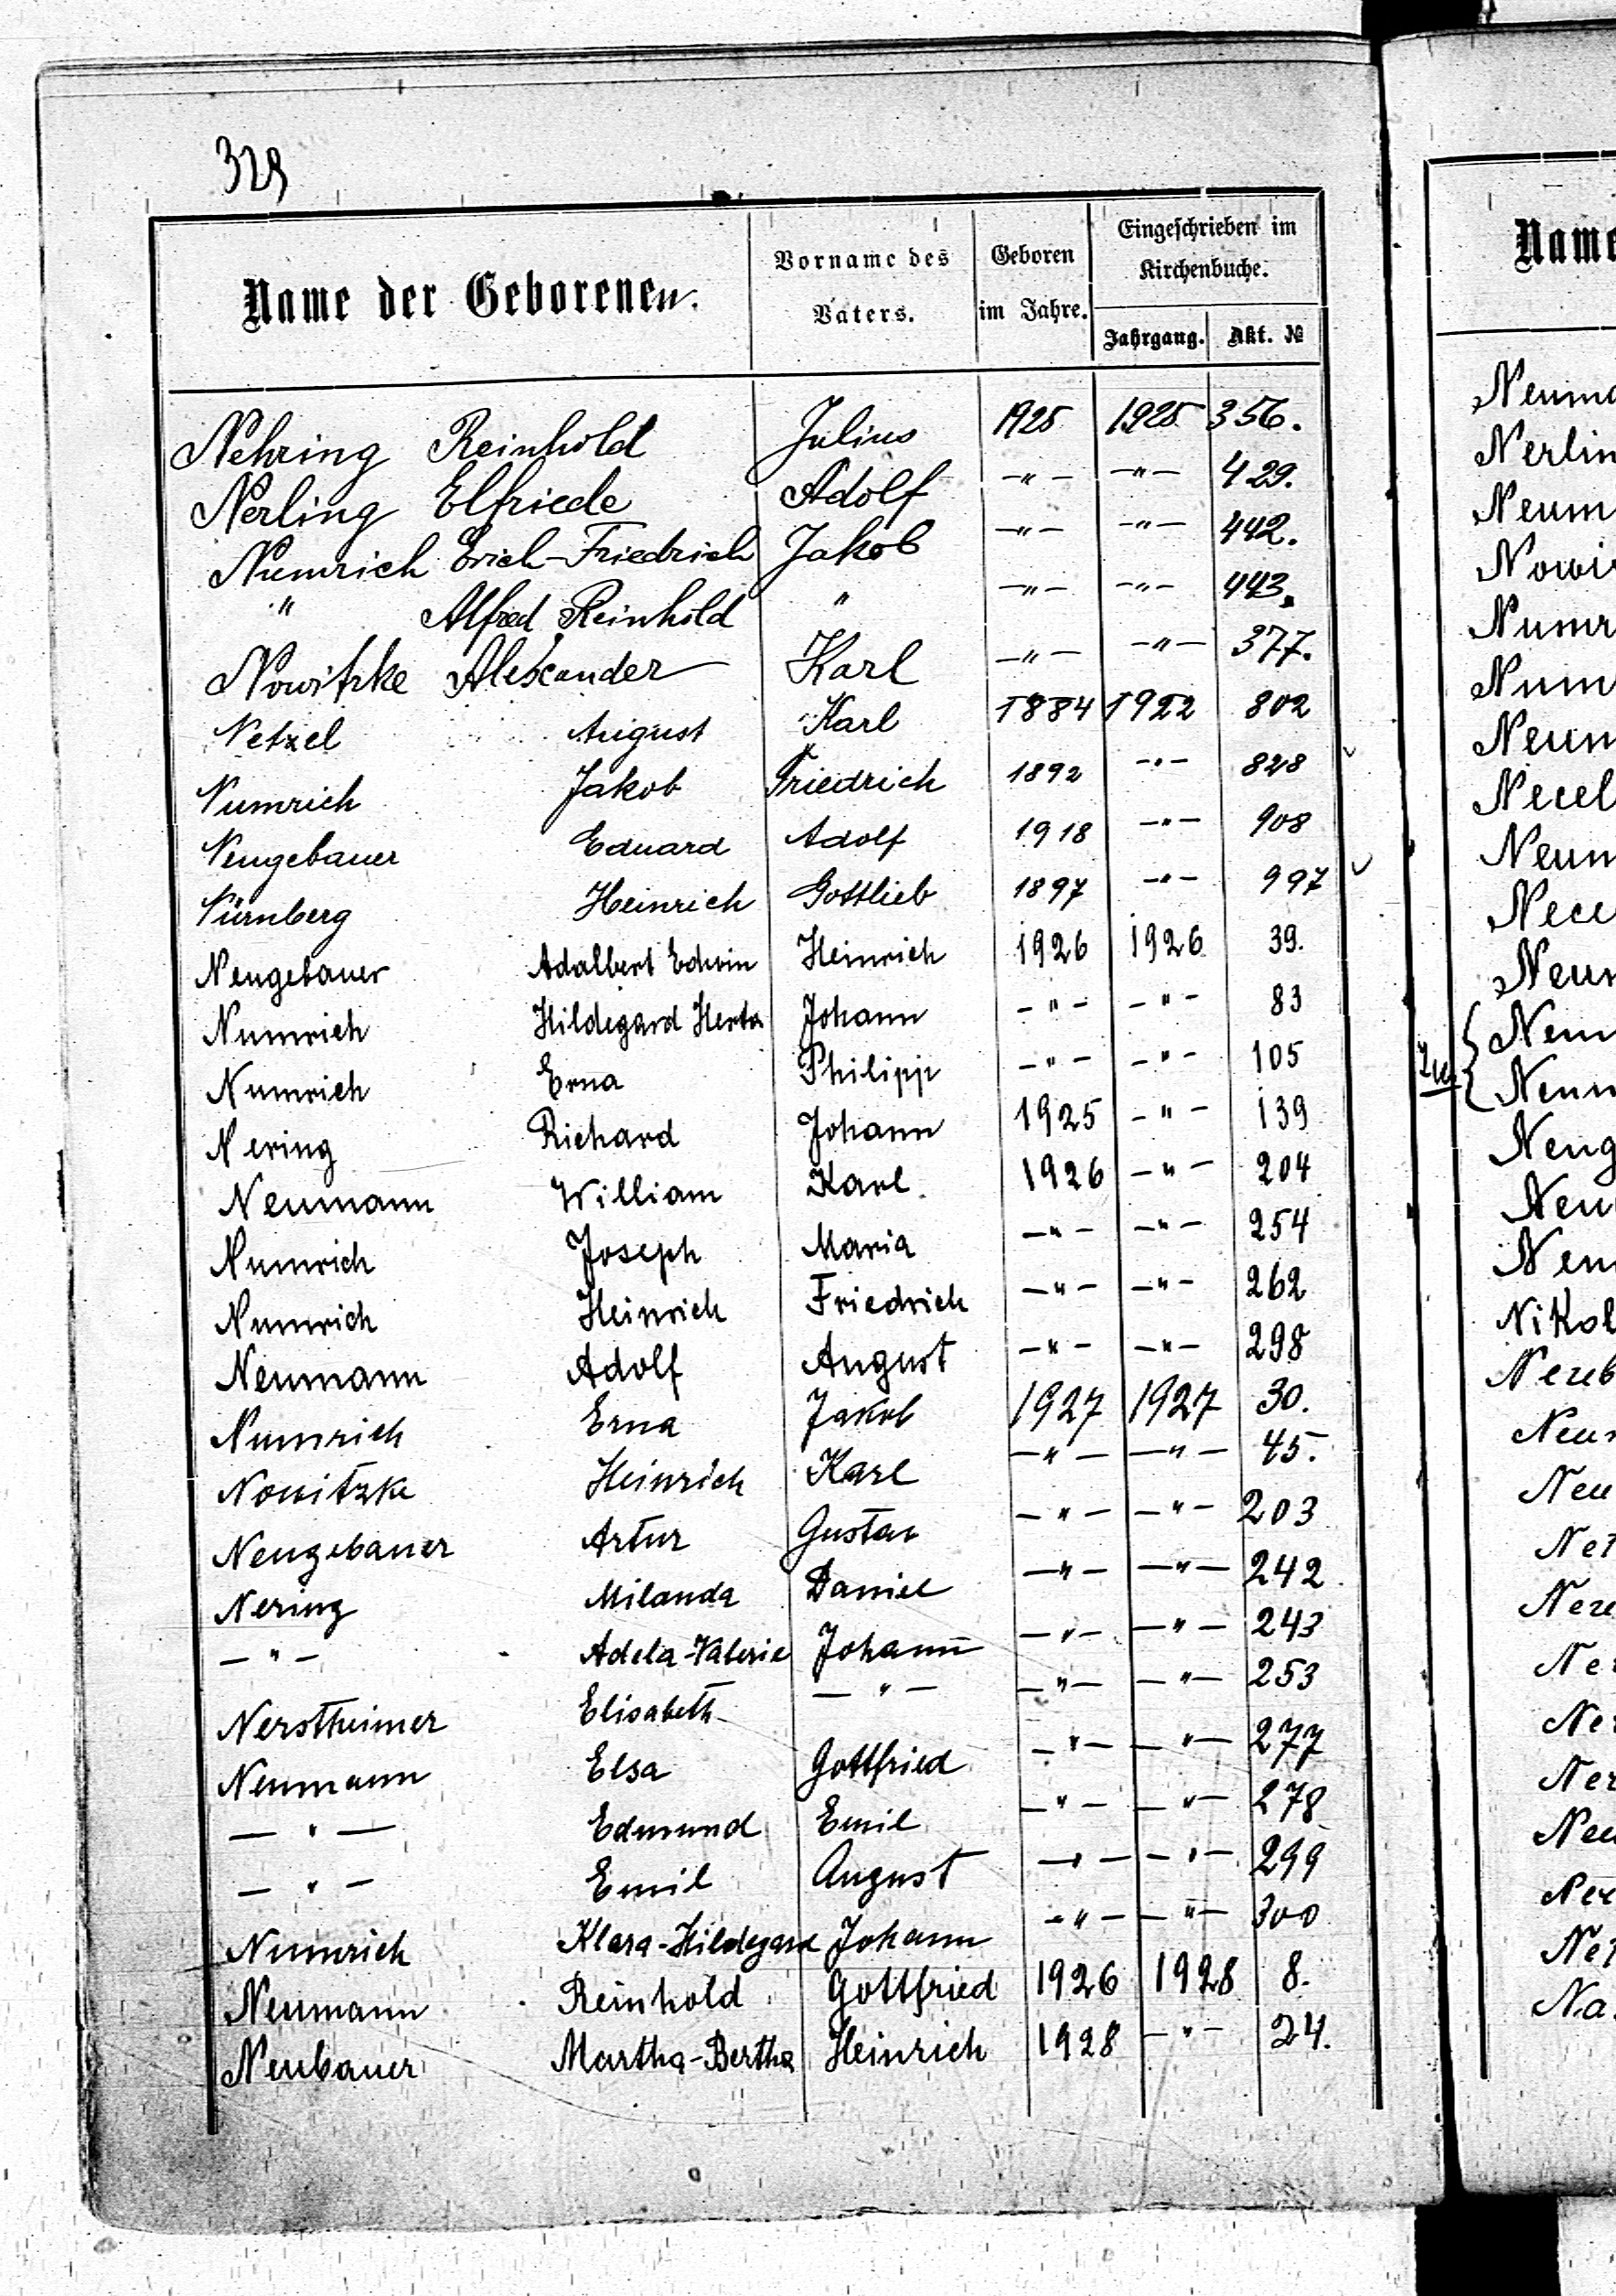 329
Name der Geborenen. Vorname des Vaters. Geboren im Jahre. Eingeschrieben im Kirchenbuche. Jahrgang. Akt. №
Nehring Reinhold Julius 1925 1925 356.
Nerling Elfriede Adolf -"- -"- 429.
Numrich Erich-Friedrich Jakob -"- -"- 442.
" Alfred Reinhold " -"- -"- 443.
Nowitzke Alexander Karl -"- -"- 377.
Netzel August Karl 1884 1922 802
Numrich Jakob Friedrich 1892 -"- 828
Neugebauer Eduard Adolf 1918 -"- 908
Nürnberg Heinrich Gottlieb 1897 -"- 997
Neugebauer Adalbert Edwin Heinrich 1926 1926 39.
Numrich Hildegard Herta Johann -"- -"- 83
Numrich Erna Philipp -"- -"- 105
Nering Richard Johann 1925 -"- 139
Neumann William Karl 1926 -"- 204
Numrich Joseph Maria -"- -"- 254
Numrich Heinrich Friedrich -"- -"- 262
Neumann Adolf August -"- -"- 298
Numrich Erna Jakob 1927 1927 30.
Nowitzke Heinrich Karl -"- -"- 45.
Neugebauer Artur Gustav -"- -"- 203
Nering Milanda Daniel -"- -"- 242
-"- Adela-Valerie Johann -"- -"- 243
Nerstheimer Elisabeth -"- -"- -"- 253
Neumann Elsa Gottfried -"- -"- 277
-"- Edmund Emil -"- -"- 278
-"- Emil August -"- -"- 299
Numrich Klara-Hildegard Johann -"- -"- 300
Neumann Reinhold Gottfried 1926 1928 8.
Neubauer Martha-Bertha Heinrich 1928 -"- 24.
Name